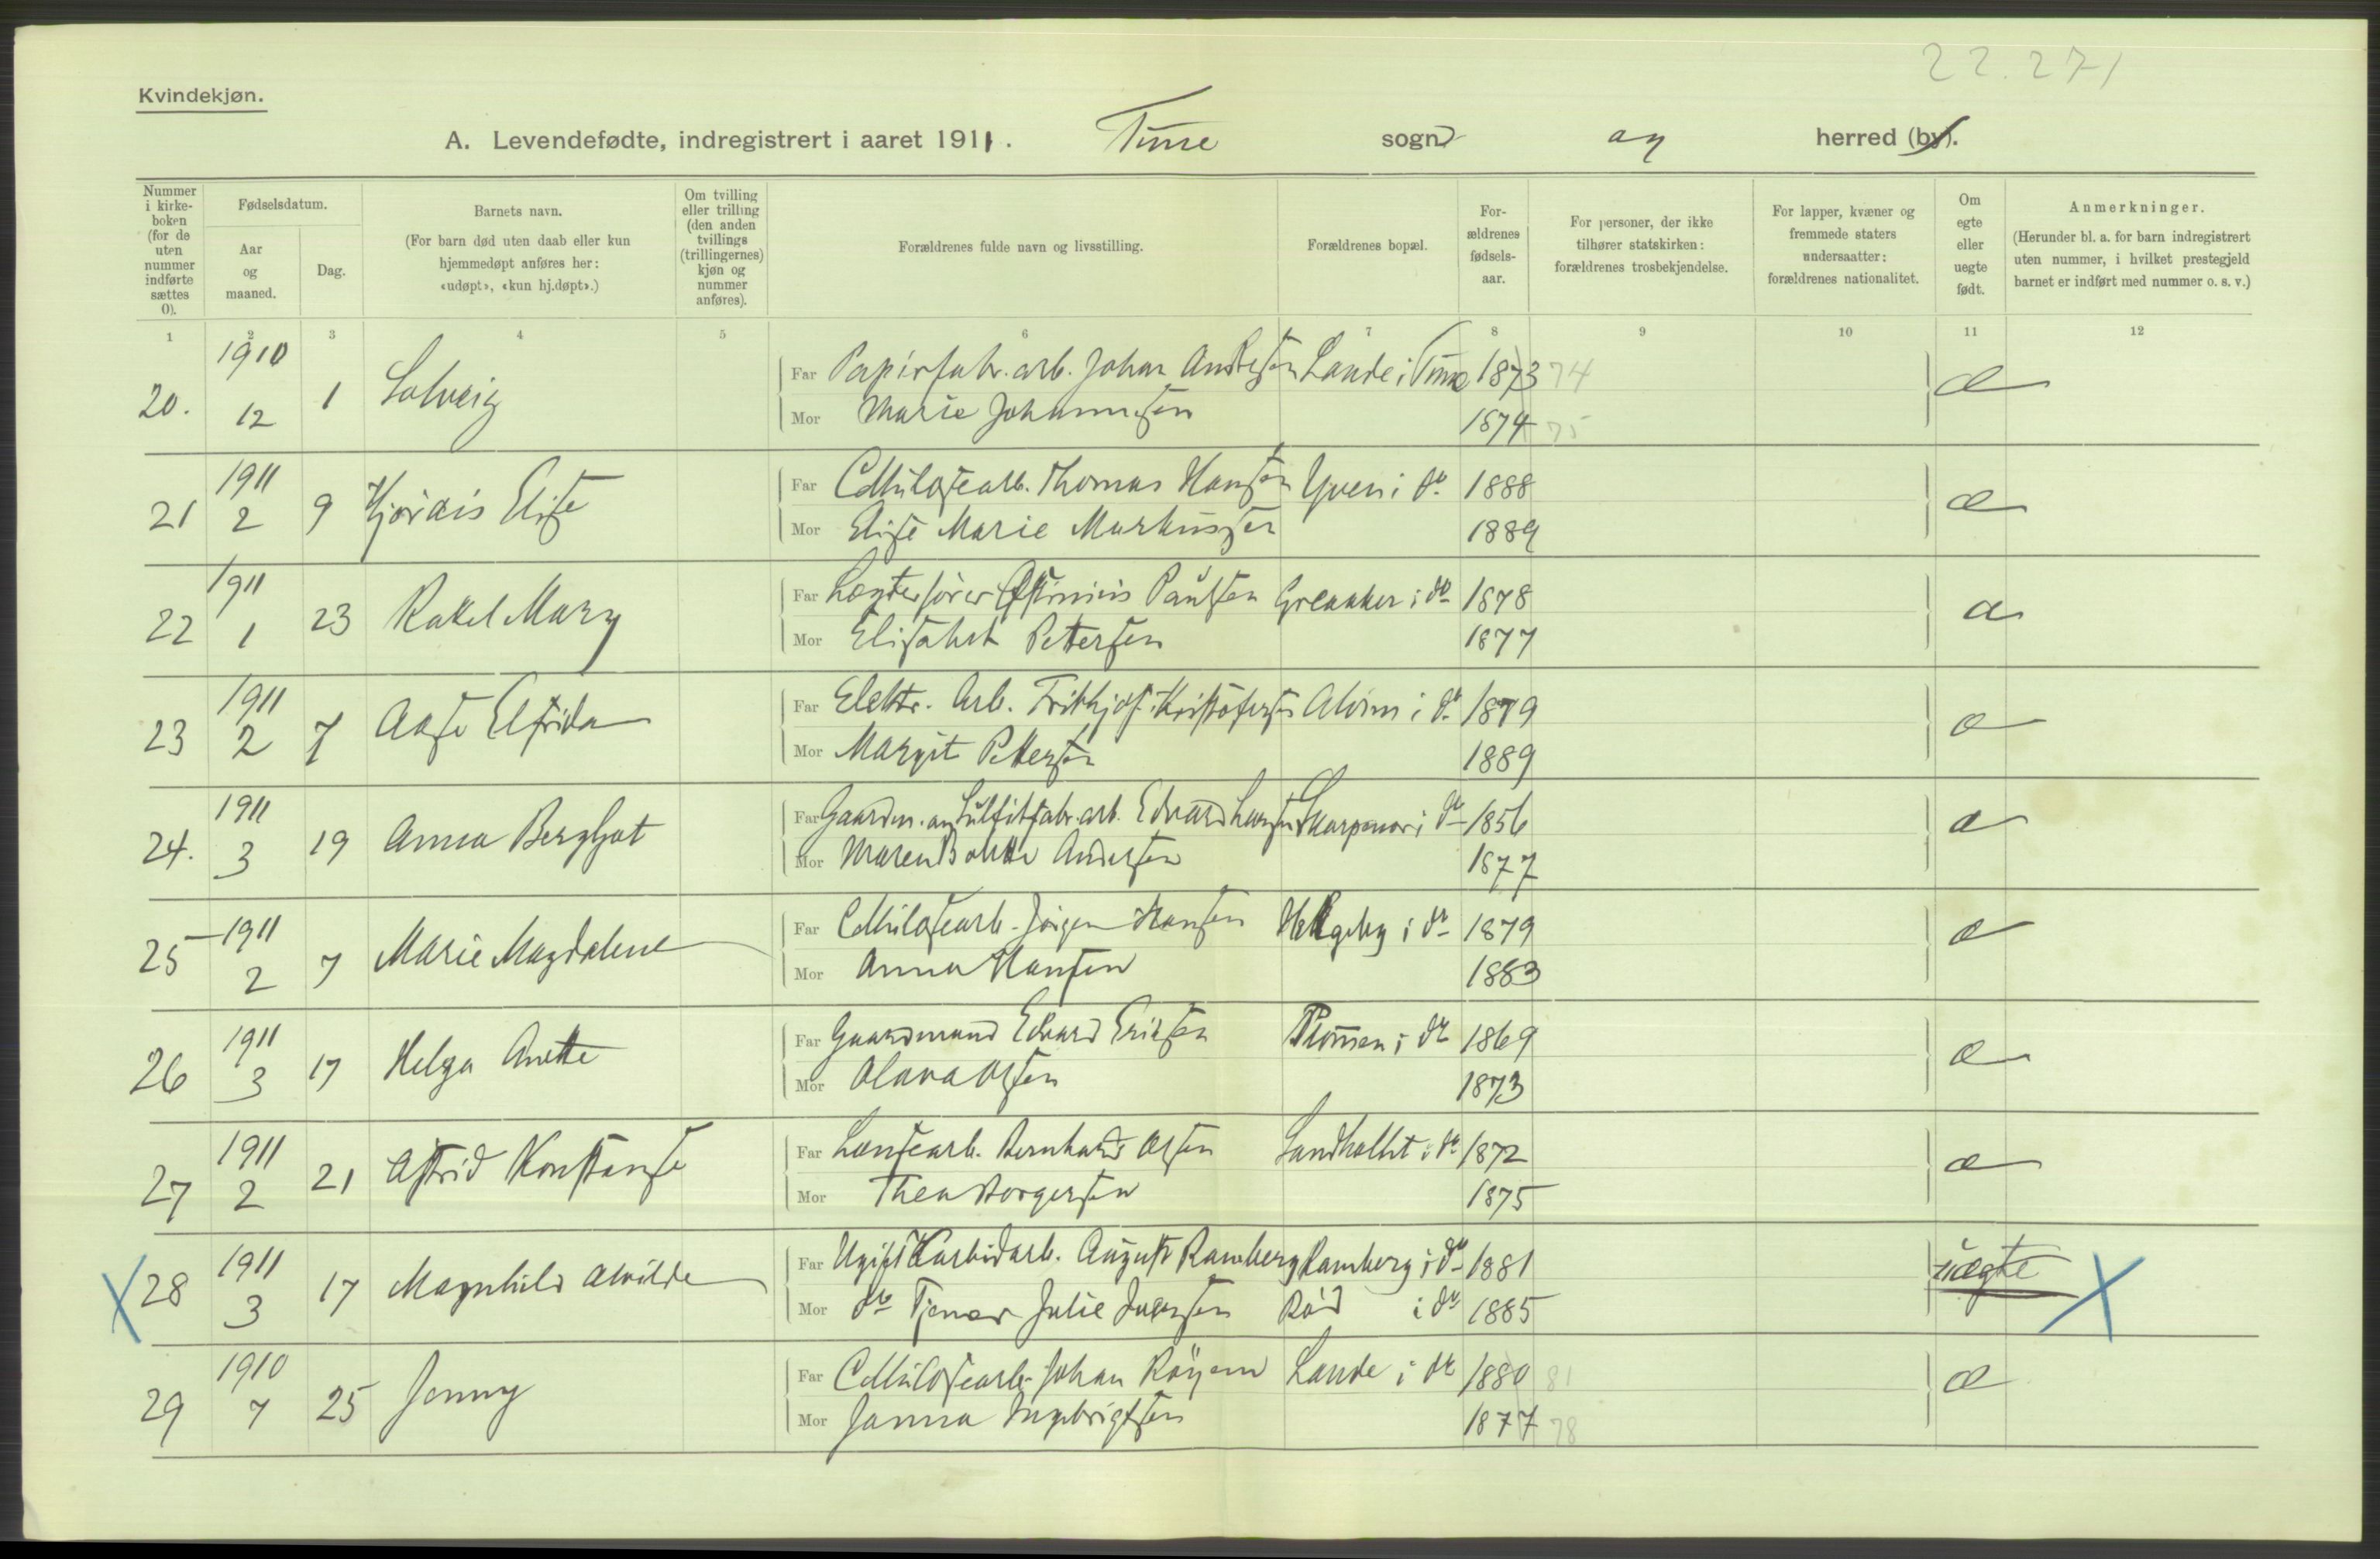 22.271
Kvindekjøn.
A. Levendefødte, indregistrert i aaret 1911. Tune sogn og herred (by).
Nummer i kirke-boken (for de uten nummer indførte sættes 0).
Fødselsdatum.
Aar og maaned.
Dag.
Barnets navn.
(For barn død uten daab eller kun hjemmedøpt anføres her: «udøpt», «kun hj.døpt».)
Om tvilling eller trilling (den anden tvillings (trillingernes) kjøn og nummer anføres).
Forældrenes fulde navn og livsstilling.
Forældrenes bopæl.
For-ældrenes fødsels-aar.
For personer, der ikke tilhører statskirken: forældrenes trosbekjendelse.
For lapper, kvæner og fremmede staters undersaatter: forældrenes nationalitet.
Om egte eller uegte født.
Anmerkninger.
(Herunder bl. a. for barn indregistrert uten nummer, i hvilket prestegjeld barnet er indført med nummer o. s. v.)
1 2 3 4 5 6 7 8 9 10 11 12
20. 1910 12 1 Solveig Far Papirfabr. arb. Johan Andersen Lande i Tune 1873 74 æ
Mor Marie Johannesen 1874 75
21 1911 2 9 Hjørdis Elise Far Cellulosearb. Thomas Hansen Yven i do 1888 æ
Mor Elise Marie Markussen 1889
22 1911 1 23 Rakel Mary Far Lægterfører Paulsen Greaaker i do 1878 æ
Mor Elisabet Pettersen 1877
23 1911 2 7 Aase Elfrida Far Elektr. Arb. Frithjof Kristofersen Alvim i do 1879 æ
Mor Margit Pettersen 1889
24. 1911 3 19 Anna Bergljot Far Gaardm. og Sulfitfabr. arb. Edvard Larsen i do 1856 æ
Mor Maren Andersen 1877
25 1911 2 7 Marie Magdalene Far Cellulosearb. Jørgen Hansen Hellgeby i do 1879 æ
Mor Anna Hansen 1883
26 1911 3 17 Helga Anette Far Gaardmand Edvard Eriksen i do 1869 æ
Mor Olava Olsen 1873
27 1911 2 21 Astrid Konstanse Far Lensearb. Bernhard Olsen Sandkollet i do 1872 æ
Mor Thea Borgersen 1875
28 1911 3 17 Magnhild Alvilde Far Ugift Karbidarb. August Ramberg Ramberg i do 1881 uægte
Mor do Tjener Julie Rød i do 1885
29 1910 7 25 Jenny Far Cellulosearb. Johan Lande i do 1880 81 æ
Mor Janna Ingebrigtsen 1877 78